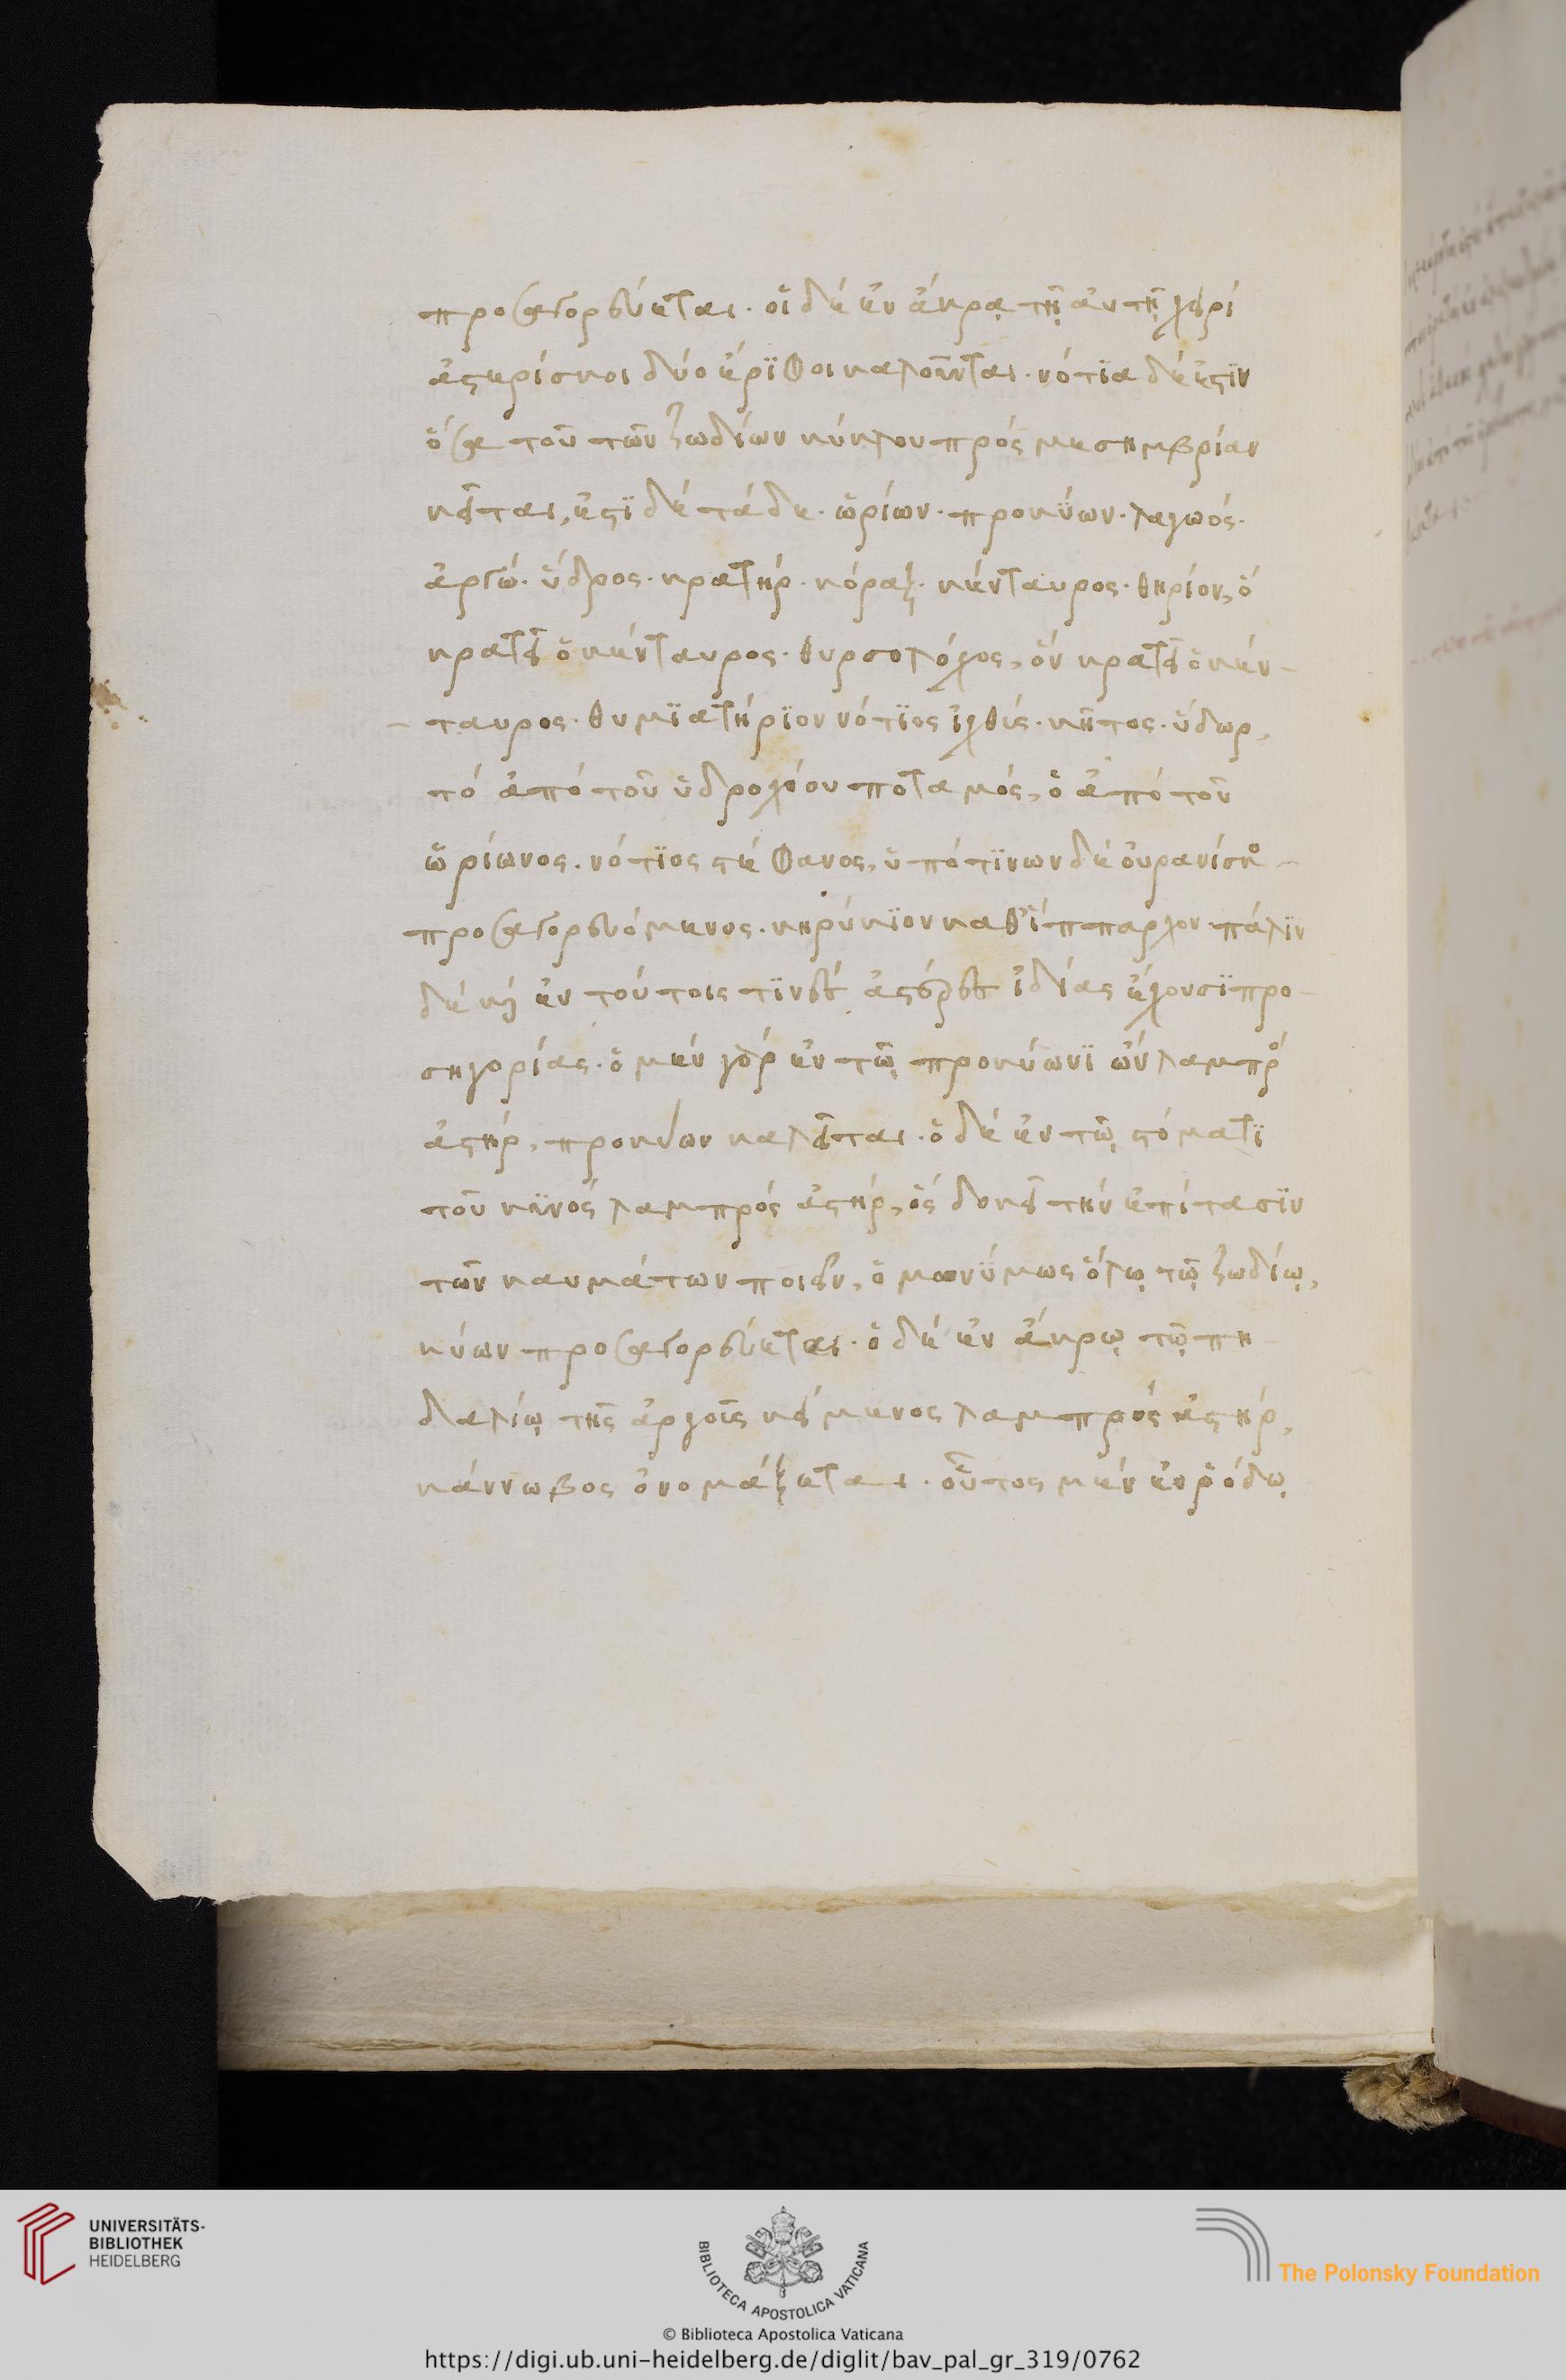 προσαγορεύεται. οἱ δὲ ἐν ἄκρᾳ τῇ αὐτῇ χειρὶ
ἀστερίσκοι δύο ἔριφοι καλοῦνται. νότια δέ ἐστιν
ὅσα τοῦ τῶν ζωδίων κύκλου πρὸς μεσημβρίαν
κεῖται, ἐστὶ δὲ τάδε. ὠρίων. προκύων. λαγωός.
ἀργώ. ὕδρος. κρατήρ. κόραξ. κένταυρος. θηρίον, ὃ
κρατεῖ ὁ κένταυρος. θυρσολόγχος, ὃν κρατεῖ ὁ κέν-
ταυρος. θυμιατήριον νότιος ἰχθύς. κῆτος. ὕδωρ,
τὸ ἀπὸ τοῦ ὑδροχόου ποταμός, ὁ ἀπὸ τοῦ
ὠρίωνος. νότιος στέφανος, ὑπό τινων δὲ οὐρανίσκος
προσαγορευόμενος. κηρύκιον καθ' ἵππαρχον πάλιν
δὲ καὶ ἐν τούτοις τινὲς ἀστέρες ἰδίας ἔχουσι προ-
σηγορίας. ὁ μὲν γὰρ ἐν τῷ προκύωνι ὢν λαμπρὸς
ἀστήρ, προκύων καλεῖται. ὁ δὲ ἐν τῷ στόματι
τοῦ κυνὸς λαμπρὸς ἀστήρ, ὃς δοκεῖ τὴν ἐπίτασιν
τῶν καυμάτων ποιεῖν, ὁμωνύμως ὅλῳ τῷ ζωδίῳ,
κύων προσαγορεύεται. ὁ δὲ ἐν ἄκρῳ τῷ πη
δαλίῳ τῆς ἀργοῦς κείμενος λαμπρὸς ἀστήρ,
κάννωβος ὀνομάζεται. οὗτος μὲν ἐν ῥόδῳ
UNIVERSITÄTS-
BIBLIOTHEK
HEIDELBERG
BIBLIOTECA APOSTOLICA VATICANA
The Polonsky Foundation
© Biblioteca Apostolica Vaticana
https://digi.ub.uni-heidelberg.de/diglit/bav_pal_gr_319/0762